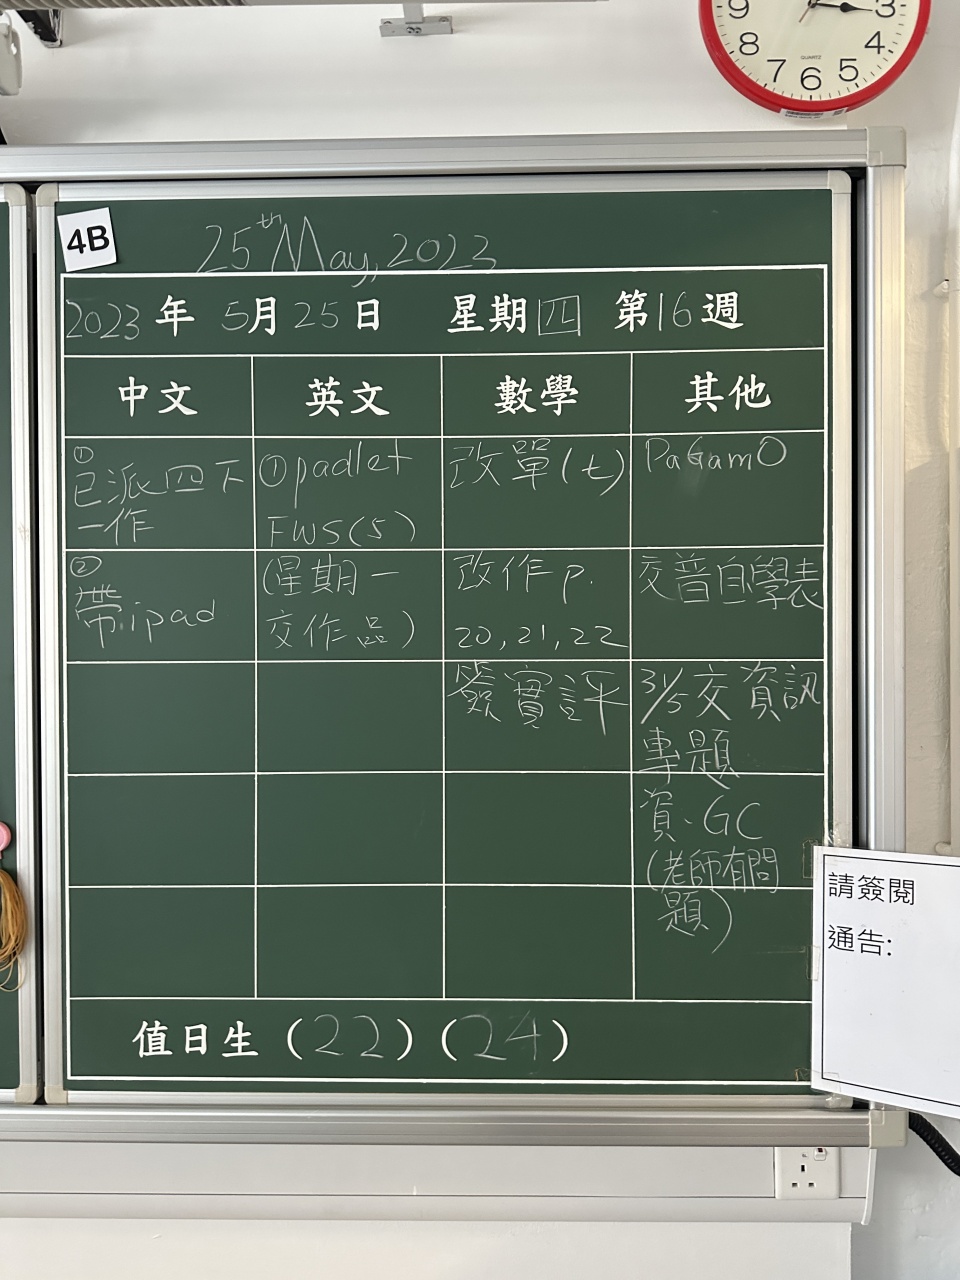 9
3
8
4
7
5
6
QUARTZ
4B
25th May, 2023
2023年 5月25日 星期四 第16週
中文 英文 數學 其他
①
已派四下
一作
①padlet
FWS(5)
改單(七)
PaGamO
②
帶ipad
(星期一
交作品)
改作p.
20,21,22
交普自學表
簽實評
31/5交資訊
專題
資、GC
(老師有問
題)
值日生 (22) (24)
請簽閱
通告: